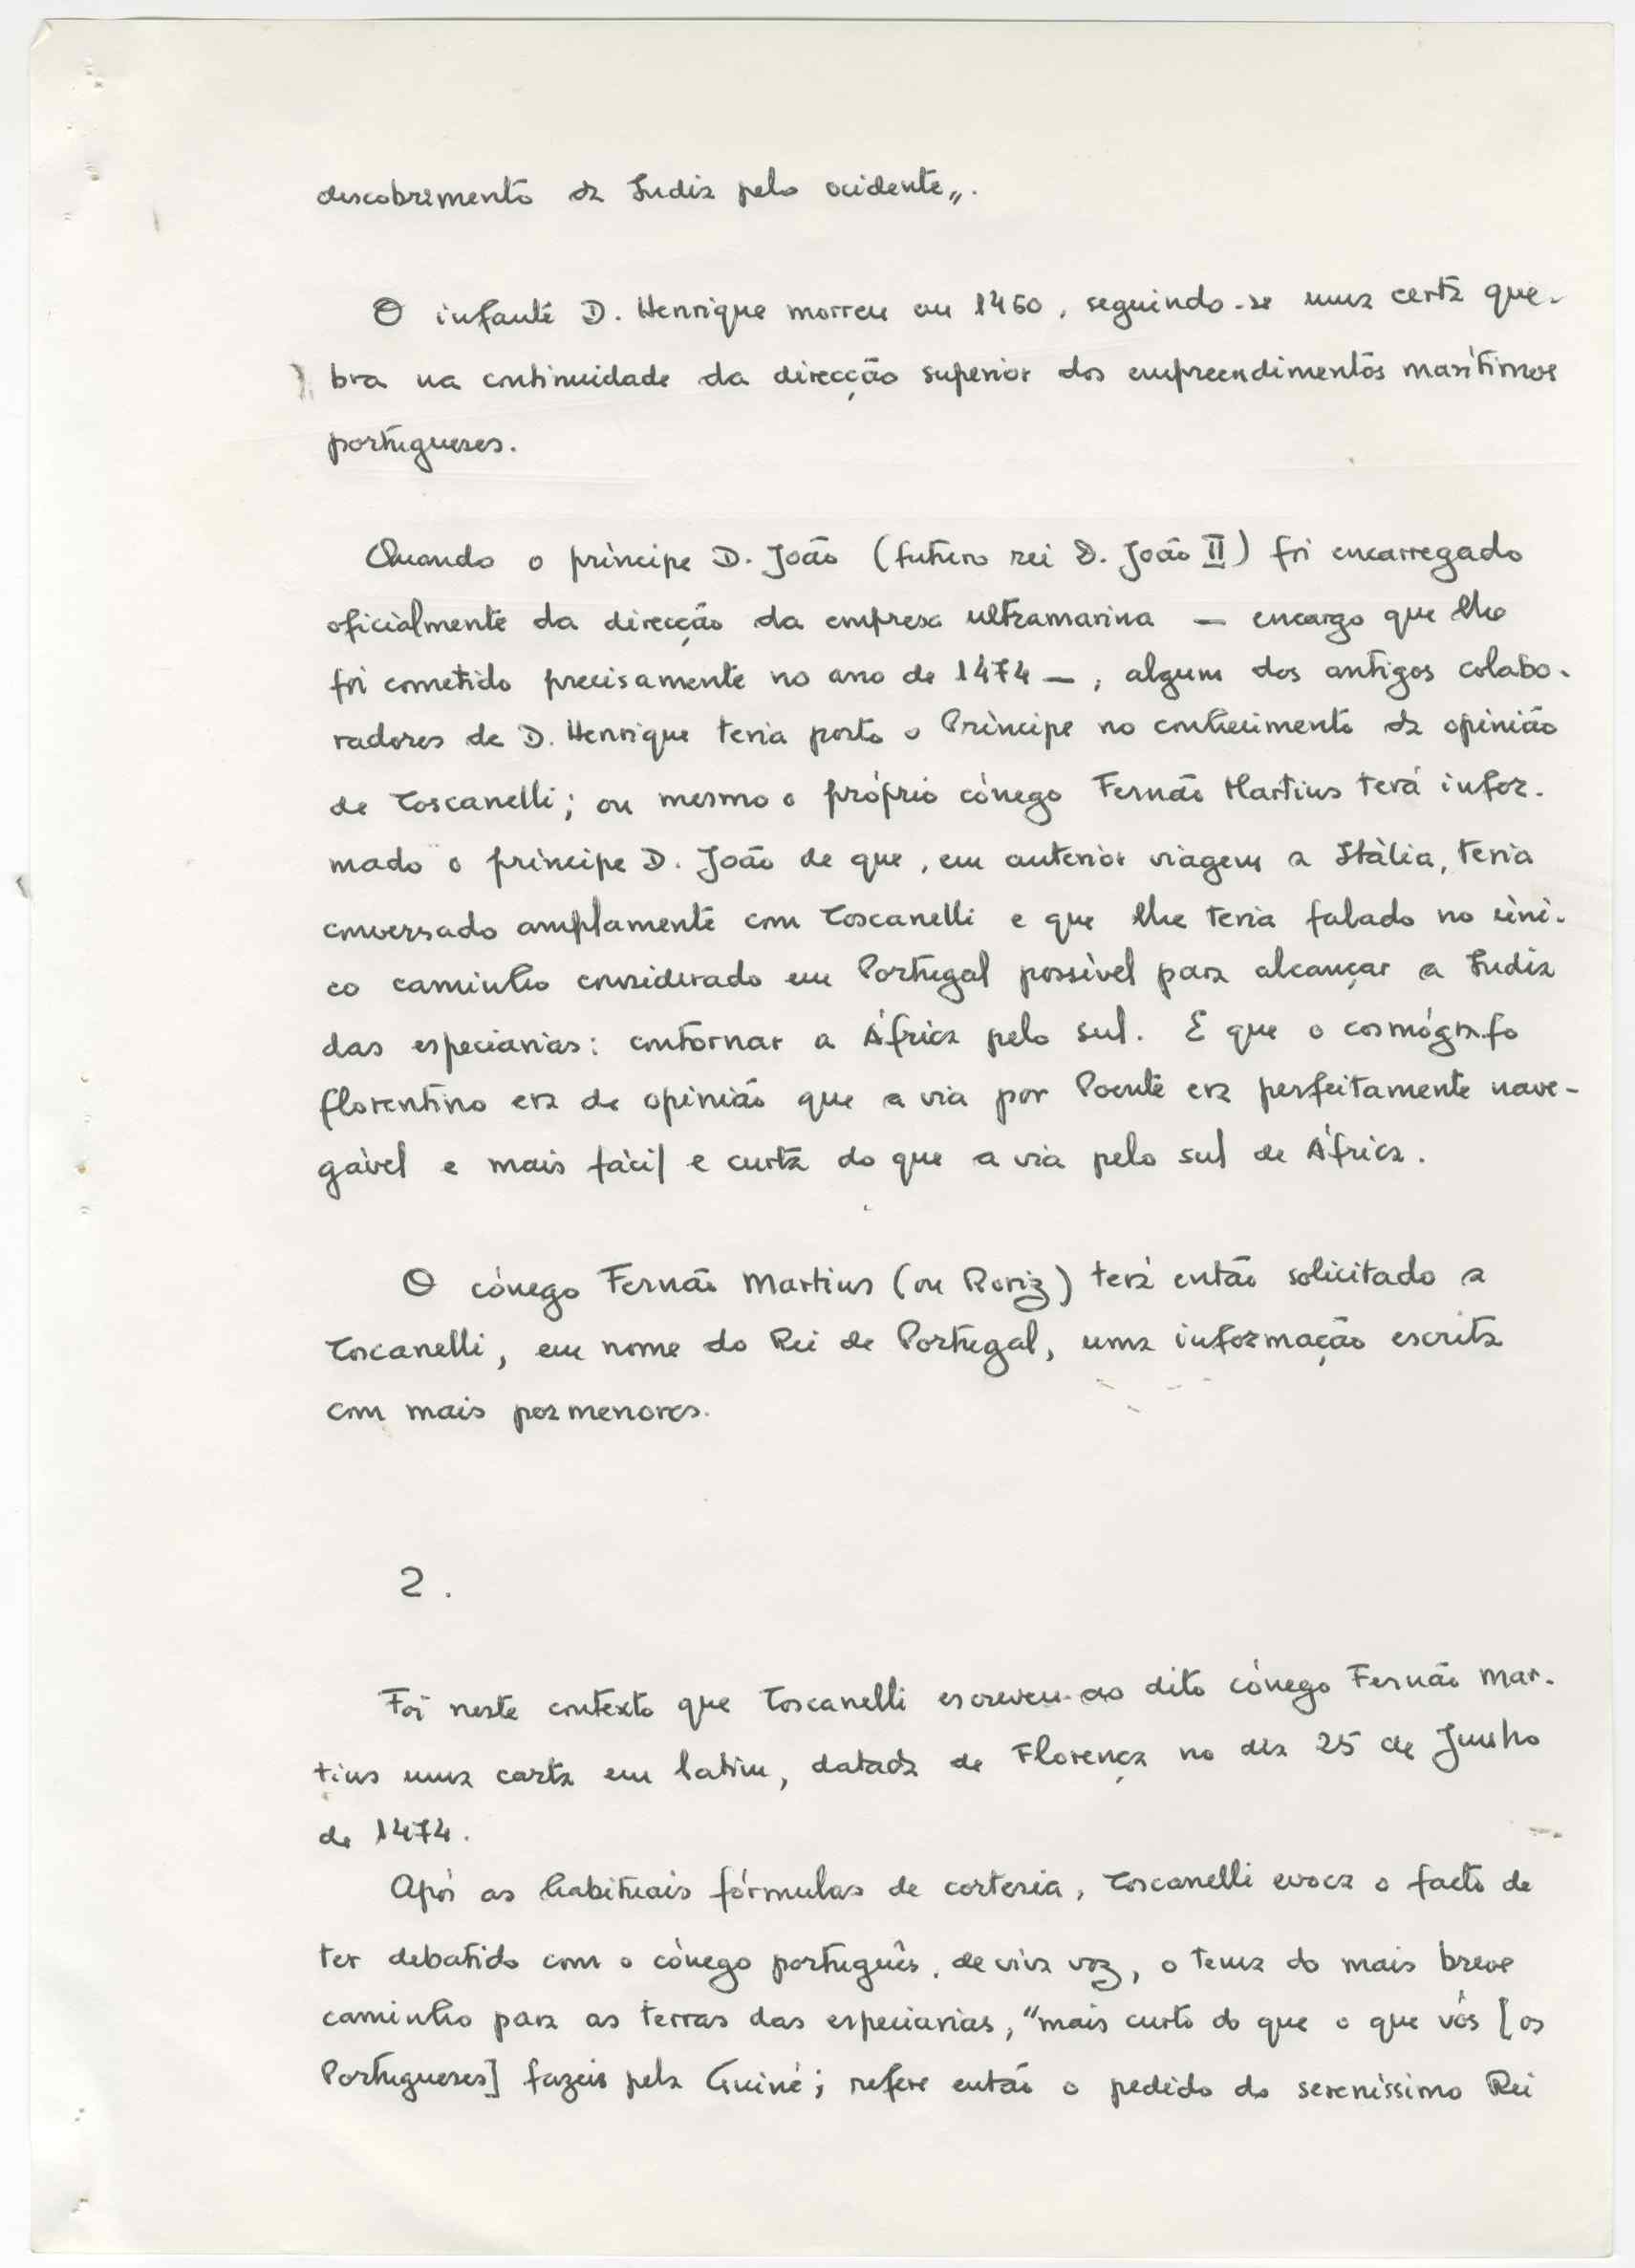 descobrimento da India pelo ocidente„.
O infante D. Henrique morreu em 1460, seguindo-se uma certa que-
bra na continuidade da direcção superior dos empreendimentos marítimos
portugueses.
Quando o príncipe D. João (futuro rei D. João II) foi encarregado
oficialmente da direcção da empresa ultramarina — encargo que lhe
foi cometido precisamente no ano de 1474 —, algum dos antigos colabo-
radores de D. Henrique teria posto o Príncipe no conhecimento da opinião
de Toscanelli; ou mesmo o próprio cónego Fernão Martins terá infor-
mado o príncipe D. João de que, em anterior viagem a Itália, teria
conversado amplamente com Toscanelli e que lhe teria falado no úni-
co caminho considerado em Portugal possível para alcançar a India
das especiarias: contornar a África pelo sul. E que o cosmógrafo
florentino era de opinião que a via por Poente era perfeitamente nave-
gável e mais fácil e curta do que a via pelo sul de África.
O cónego Fernão Martins (ou Roriz) terá então solicitado a
Toscanelli, em nome do Rei de Portugal, uma informação escrita
com mais pormenores.
2.
Foi neste contexto que Toscanelli escreveu ao dito cónego Fernão Mar-
tins uma carta em latim, datada de Florença no dia 25 de Junho
de 1474.
Após as habituais fórmulas de cortesia, Toscanelli evoca o facto de
ter debatido com o cónego português, de viva voz, o tema do mais breve
caminho para as terras das especiarias, "mais curto do que o que vós [os
Portugueses] fazeis pela Guiné; refere então o pedido do sereníssimo Rei